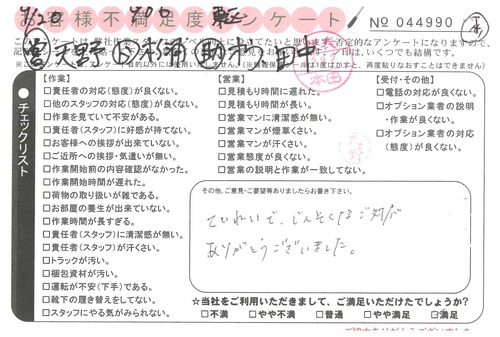 お客様不満足度アンケート
№ 044990
※このアンケート目的以外には使用いたしません。
チェックリスト
【作業】
□責任者の対応(態度)が良くない。
□他のスタッフの対応(態度)が良くない。
□作業を見ていて安心がある。
□責任者(スタッフ)に好感が持てない。
□お客様への挨拶が出来ていない。
□ご近所への挨拶・気遣いが無い。
□作業開始前の内容確認がなかった。
□作業開始時間が遅れた。
□荷物の取り扱いが雑である。
□お部屋の養生が出来ていない。
□作業時間が長すぎる。
□責任者(スタッフ)に清潔感が無い。
□責任者(スタッフ)が汗くさい。
□トラックが汚い。
□梱包資材が汚い。
□運転が不安(下手)である。
□靴下の履き替えをしてない。
□スタッフにやる気がみられない。
【営業】
□見積もり時間に遅れた。
□見積もり時間が長い。
□営業マンに清潔感が無い。
□営業マンが煙草くさい。
□営業マンが汗くさい。
□営業態度が良くない。
□営業の説明と作業が一致してない。
【受付・その他】
□電話の対応が良くない。
□オプション業者の説明・作業が良くない。
□オプション業者の対応(態度)が良くない。
その他、ご意見・ご要望等ありましたらお書き下さい。
ていねいで、じんそくなご対応
ありがとうございました。
☆当社をご利用いただきまして、ご満足いただけたでしょうか?
□不満 □やや不満 □普通 □やや満足 ☑満足